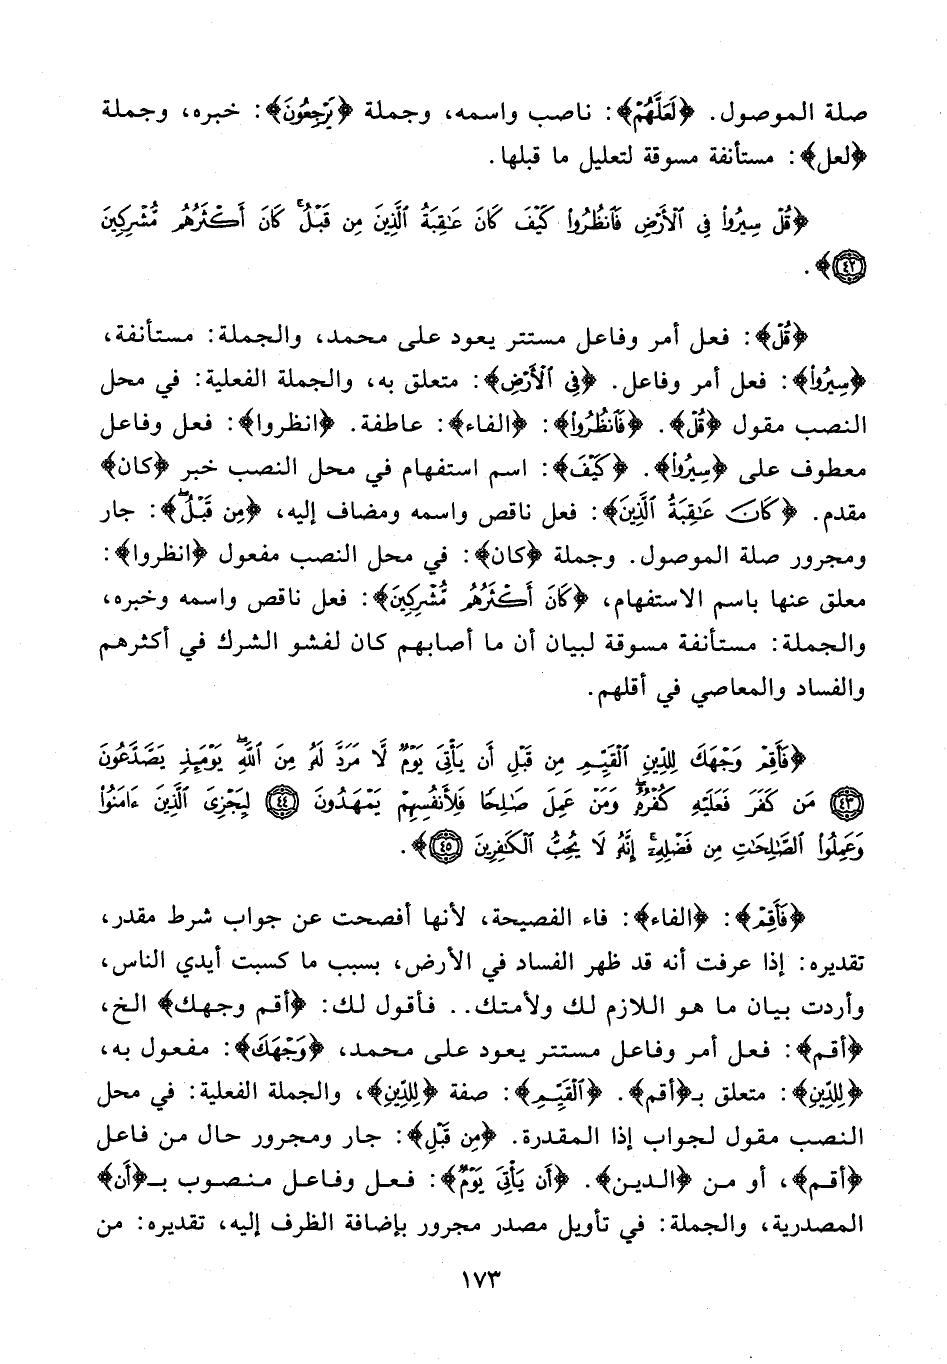 صلة الموصول. ﴿لَعَلَّهُمْ﴾: ناصب واسمه، وجملة ﴿يَرْجِعُونَ﴾: خبره، وجملة
﴿لعل﴾: مستأنفة مسوقة لتعليل ما قبلها.
﴿قُلْ سِيرُوا۟ فِى ٱلْأَرْضِ فَٱنظُرُوا۟ كَيْفَ كَانَ عَـٰقِبَةُ ٱلَّذِينَ مِن قَبْلُ ۚ كَانَ أَكْثَرُهُم مُّشْرِكِينَ
٤٢﴾.
﴿قُلْ﴾: فعل أمر وفاعل مستتر يعود على محمد، والجملة: مستأنفة،
﴿سِيرُوا۟﴾: فعل أمر وفاعل. ﴿فِى ٱلْأَرْضِ﴾: متعلق به، والجملة الفعلية: في محل
النصب مقول ﴿قُلْ﴾. ﴿فَٱنظُرُوا۟﴾: ﴿الفاء﴾: عاطفة. ﴿انظروا﴾: فعل وفاعل
معطوف على ﴿سِيرُوا۟﴾. ﴿كَيْفَ﴾: اسم استفهام في محل النصب خبر ﴿كان﴾
مقدم. ﴿كَانَ عَـٰقِبَةُ ٱلَّذِينَ﴾: فعل ناقص واسمه ومضاف إليه، ﴿مِن قَبْلُ ۖ﴾: جار
ومجرور صلة الموصول. وجملة ﴿كان﴾: في محل النصب مفعول ﴿انظروا﴾:
معلق عنها باسم الاستفهام، ﴿كَانَ أَكْثَرُهُم مُّشْرِكِينَ﴾: فعل ناقص واسمه وخبره،
والجملة: مستأنفة مسوقة لبيان أن ما أصابهم كان لفشو الشرك في أكثرهم
والفساد والمعاصي في أقلهم.
﴿فَأَقِمْ وَجْهَكَ لِلدِّينِ ٱلْقَيِّمِ مِن قَبْلِ أَن يَأْتِىَ يَوْمٌ لَّا مَرَدَّ لَهُۥ مِنَ ٱللَّهِ ۖ يَوْمَئِذٍ يَصَّدَّعُونَ
٤٣ مَن كَفَرَ فَعَلَيْهِ كُفْرُهُۥ ۖ وَمَنْ عَمِلَ صَـٰلِحًا فَلِأَنفُسِهِمْ يَمْهَدُونَ ٤٤ لِيَجْزِىَ ٱلَّذِينَ ءَامَنُوا۟
وَعَمِلُوا۟ ٱلصَّـٰلِحَـٰتِ مِن فَضْلِهِۦٓ ۚ إِنَّهُۥ لَا يُحِبُّ ٱلْكَـٰفِرِينَ ٤٥﴾.
﴿فَأَقِمْ﴾: ﴿الفاء﴾: فاء الفصيحة، لأنها أفصحت عن جواب شرط مقدر،
تقديره: إذا عرفت أنه قد ظهر الفساد في الأرض، بسبب ما كسبت أيدي الناس،
وأردت بيان ما هو اللازم لك ولأمتك.. فأقول لك: ﴿أقم وجهك﴾ الخ،
﴿أقم﴾: فعل أمر وفاعل مستتر يعود على محمد، ﴿وَجْهَكَ﴾: مفعول به،
﴿لِلدِّينِ﴾: متعلق بـ﴿أقم﴾. ﴿ٱلْقَيِّمِ﴾: صفة ﴿لِلدِّينِ﴾، والجملة الفعلية: في محل
النصب مقول لجواب إذا المقدرة. ﴿مِن قَبْلِ﴾: جار ومجرور حال من فاعل
﴿أقم﴾، أو من ﴿الدين﴾. ﴿أَن يَأْتِىَ يَوْمٌ﴾: فعل وفاعل منصوب بـ﴿أَن﴾
المصدرية، والجملة: في تأويل مصدر مجرور بإضافة الظرف إليه، تقديره: من
١٧٣